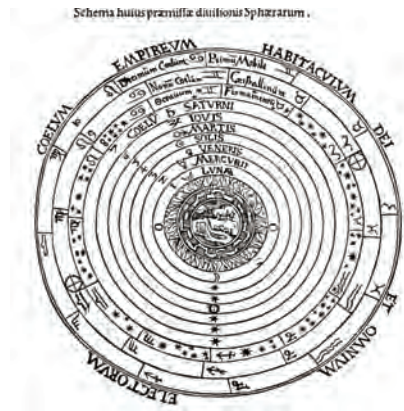 Schema huius præmissæ diuisionis Sphærarum.
COELVM EMPIREVM HABITACVLVM DEI ET OMNIVM ELECTORVM
Decimum Cœlum Primũ Mobile
Nonũ Cœlum Cristallinum
Firmamentũ
COELV SATVRNI
IOVIS
MARTIS
SOLIS
VENERIS
MERCVRII
LVNÆ